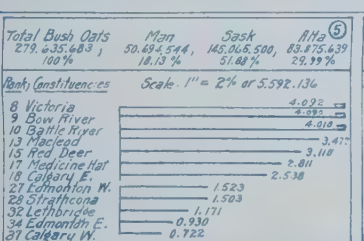 Total Bush Oats Man Sask Alta ⑤
279.635.683, 50.694,544, 145.065,500, 83.875.639
100% 18.13% 51.88% 29.99%
Rank, Constituencies Scale. 1"= 2% or 5.592.136
8 Victoria 4.092
9 Bow River 4.092
10 Battle River 4.010
13 Macleod 3.477
15 Red Deer 3.118
17 Medicine Hat 2.811
18 Calgary E. 2.538
27 Edmonton W. 1.523
28 Strathcona 1.503
32 Lethbridge 1.171
34 Edmonton E. 0.930
37 Calgary W. 0.722